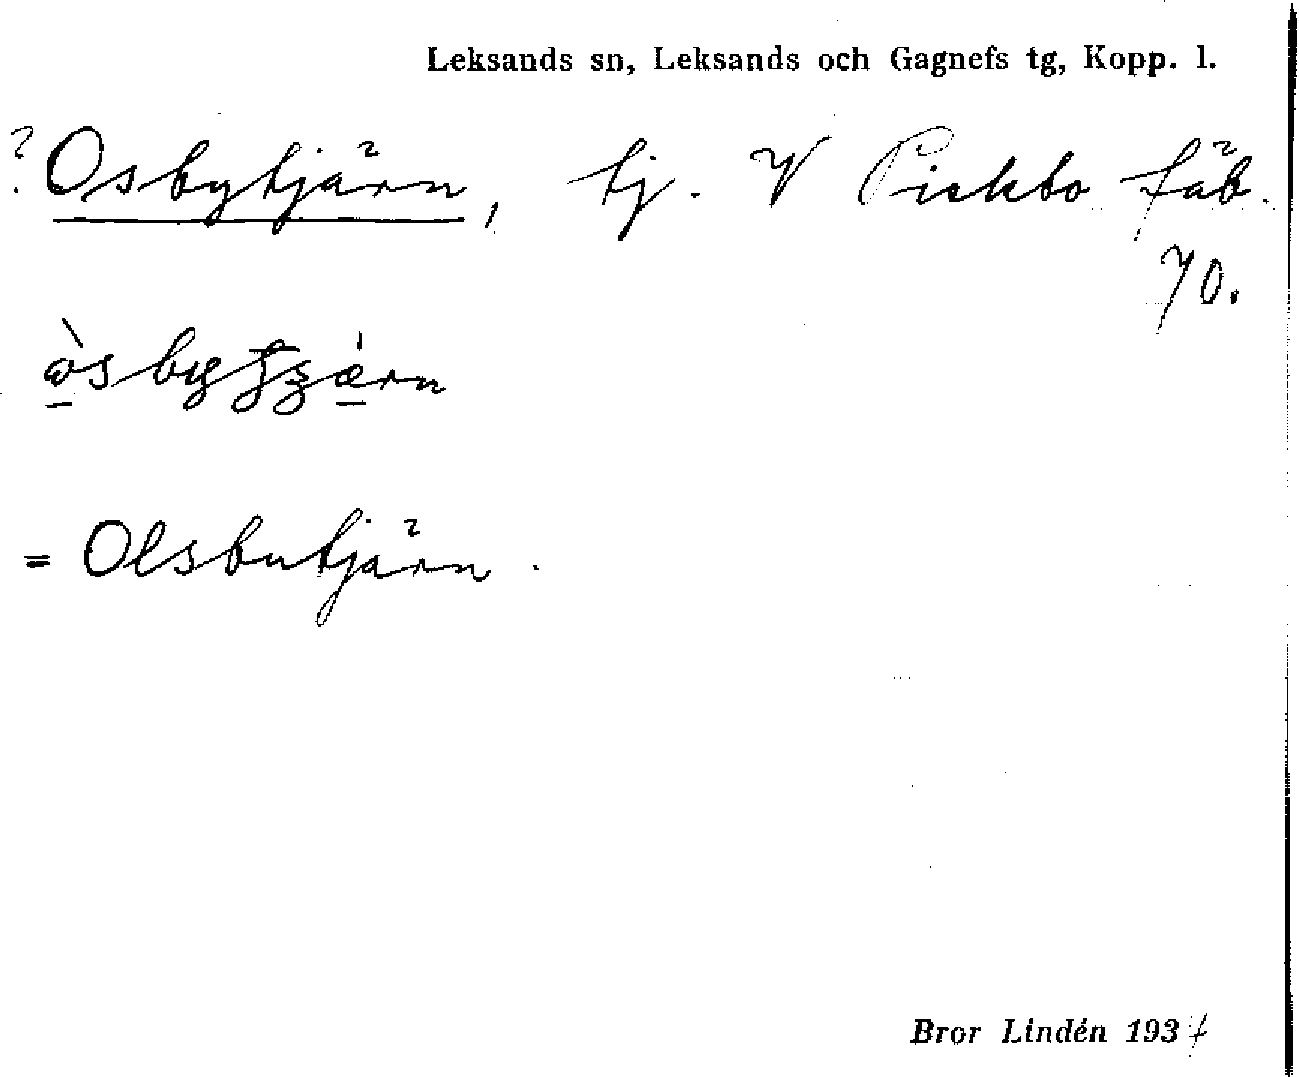 Leksands sn, Leksands och Gagnefs tg, Kopp. l.
? Osbytjärn, tj. V Pickbo fäb.
70.
= Olsbutjärn.
Bror Lindén 193